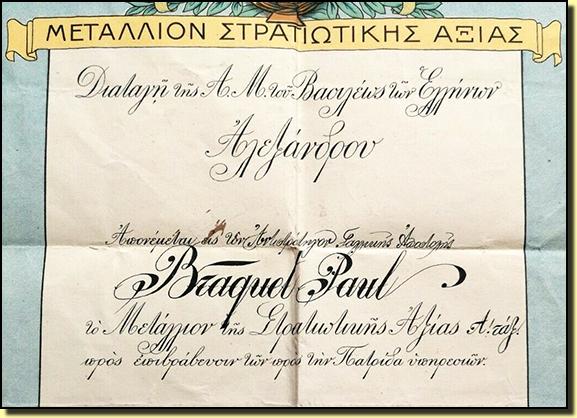 ΜΕΤΑΛΛΙΟΝ ΣΤΡΑΤΙΩΤΙΚΗΣ ΑΞΙΑΣ
Διαταγῇ τῆς Α. Μ. τοῦ Βασιλέως τῶν Ἑλλήνων
Ἀλεξάνδρου
Ἀπονέμεται εἰς τὸν Γαλλικῆς Ἀποστολῆς
Braquel Paul
τὸ Μετάλλιον τῆς Στρατιωτικῆς Ἀξίας Α! τάξ.
πρὸς ἐπιβράβευσιν τῶν πρὸς τὴν Πατρίδα ὑπηρεσιῶν.